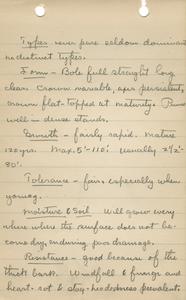 Types - never pure seldom dominant
no distinct types.
Form - Bole full straight long
clear. Crown variable, apex persistent,
crown flat-topped at maturity. Prunes
well in dense stands.
Growth - fairly rapid. Mature
120 yrs. Max. 5'-110'. Usually 2'/2'-
80'.
Tolerance - fair, especially when
young.
Moisture & Soil Will grow every
where where the surface does not be-
come dry, enduring poor drainage.
Resistance - good because of the
thick bark. Windfall & fungus and
heart-rot & stag-headedness prevalent.